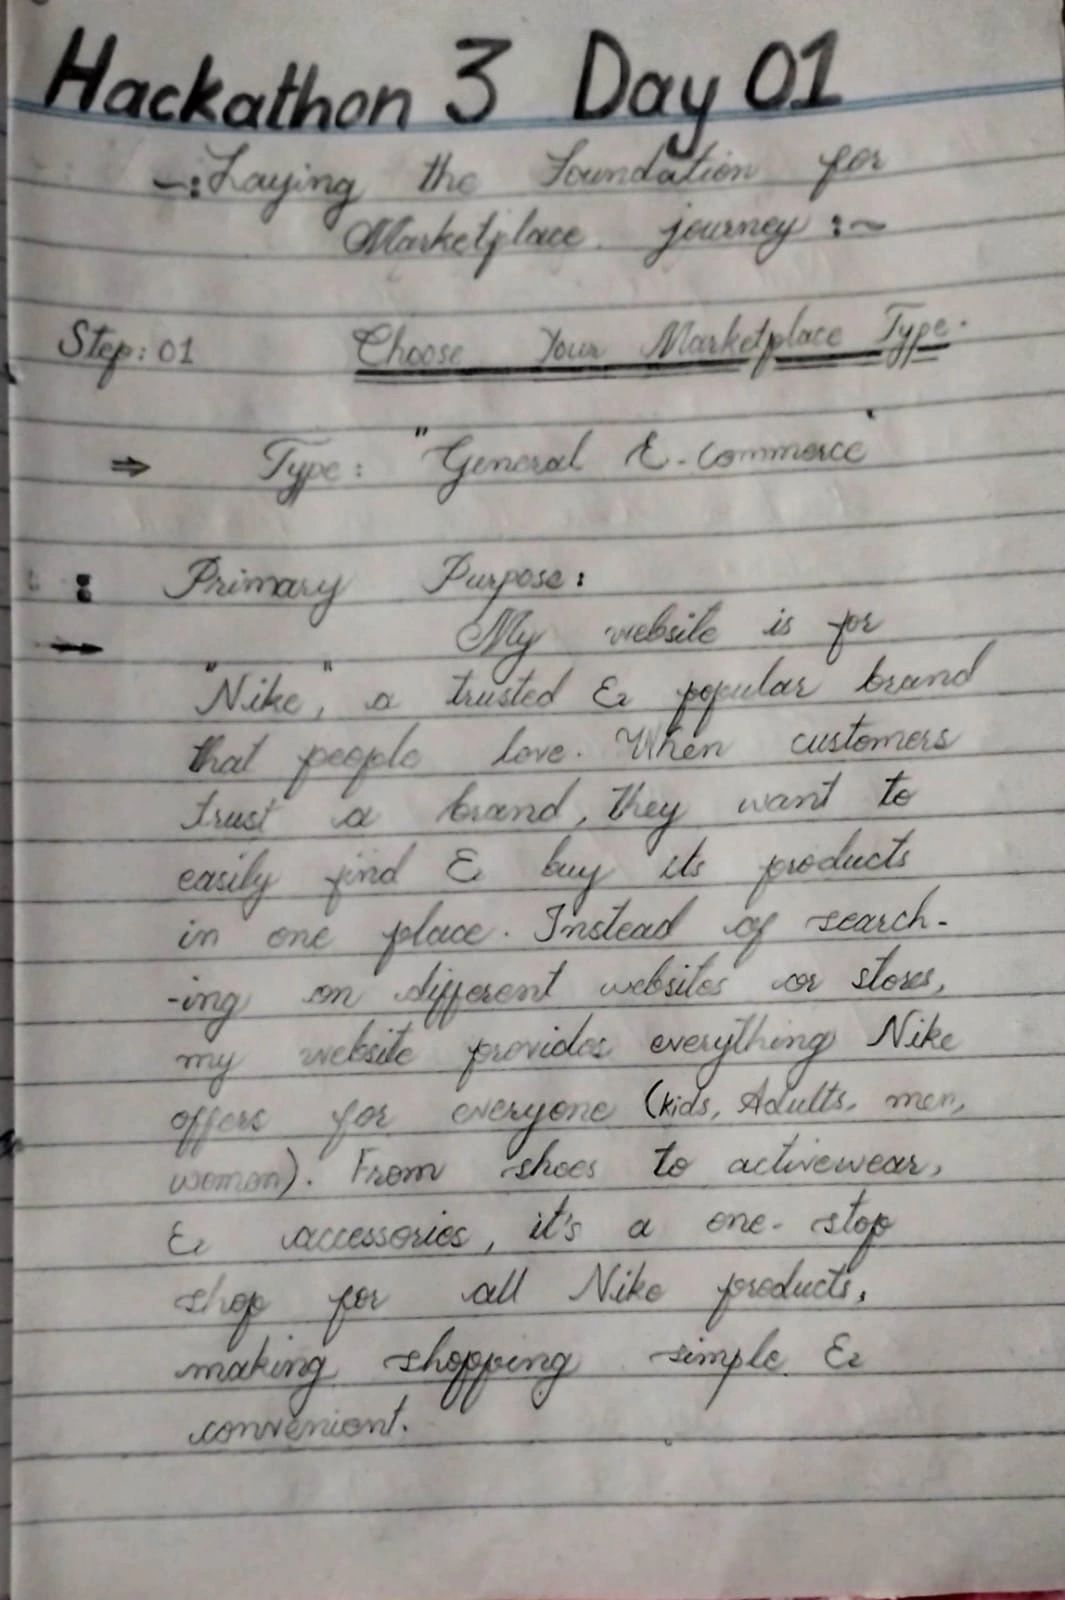 Hackathon 3 Day 01
-:Laying the Foundation for
Marketplace journey :~
Step: 01 Choose Your Marketplace Type.
⇒ Type: "General E-Commerce"
: Primary Purpose:
→ My website is for
"Nike", a trusted & popular brand
that people love. When customers
trust a brand, they want to
easily find & buy its products
in one place. Instead of search-
-ing on different websites or stores,
my website provides everything Nike
offers for everyone (kids, Adults, men,
women). From shoes to activewear,
& accessories, it's a one-stop
shop for all Nike products,
making shopping simple &
convenient.